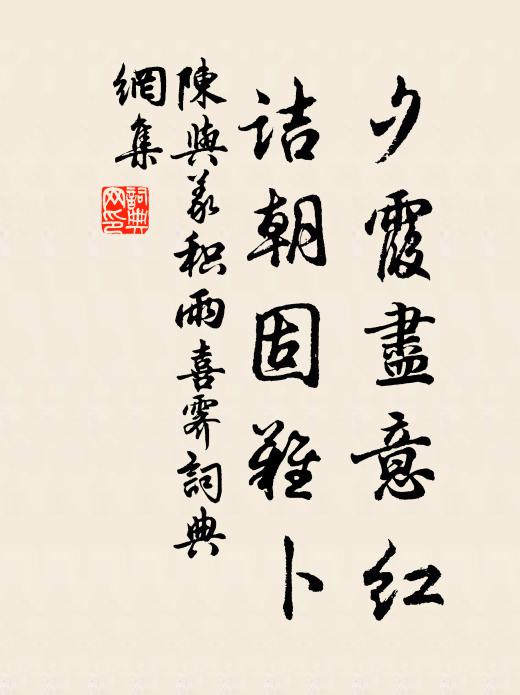 夕霞盡意紅
詰朝固難卜
陳與義積雨喜霽詞典
網集
詞典網印